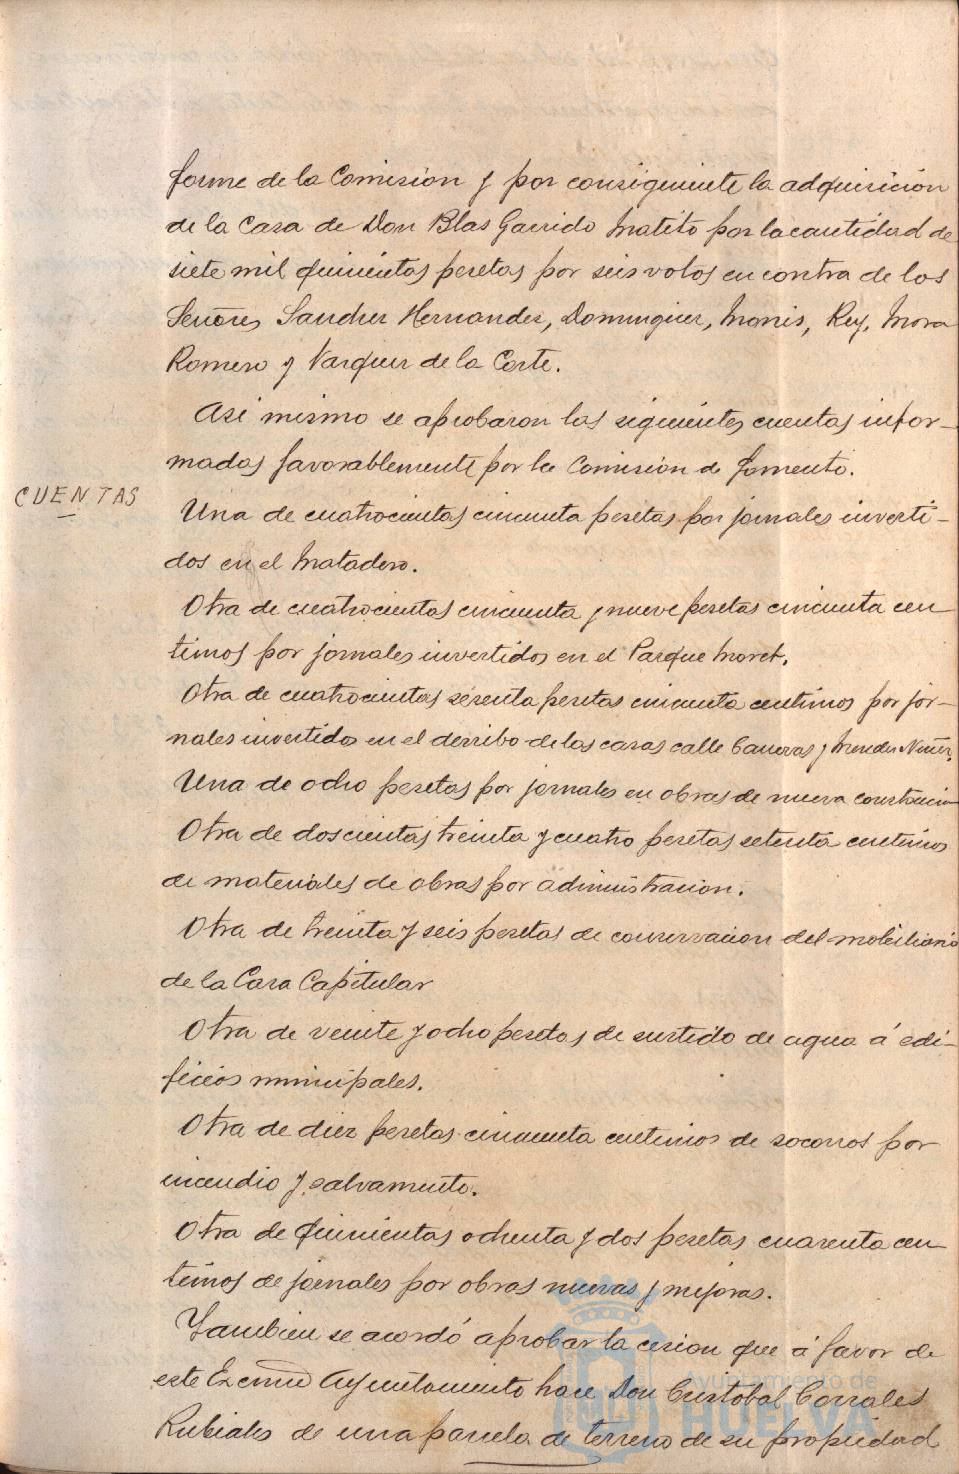 forme de la Comision y por consiguiente la adquisicion
de la Casa de Don Blas Garrido Matito por la cantidad de
siete mil quinientas pesetas por seis votos en contra de los
Señores Sanchez Hernandez, Dominguez, Monis, Rey, Mora
Romero y Vazquez de la Corte.
Asi mismo se aprobaron las siguientes cuentas infor-
madas favorablemente por la Comision de Fomento.
CUENTAS
Una de cuatrocientas cincuenta pesetas por jornales inverti-
dos en el Matadero.
Otra de cuatrocientas cincuenta y nueve pesetas cincuenta cen
timos por jornales invertidos en el Parque Moret.
Otra de cuatrocientas sesenta pesetas cincuenta centimos por jor-
nales invertidos en el derribo de las casas calle Canovas y Mendez Nuñez.
Una de ocho pesetas por jornales en obras de nueva construccion
Otra de doscientas treinta y cuatro pesetas setenta centimos
de materiales de obras por administracion.
Otra de treinta y seis pesetas de conservacion del mobiliario
de la Casa Capitular
Otra de veinte y ocho pesetas de surtido de agua á edi-
ficios municipales.
Otra de diez pesetas cincuenta centimos de socorros por
incendio y salvamento.
Otra de quinientas ochenta y dos pesetas cuarenta cen
timos de jornales por obras nuevas y mejoras.
Tambien se acordó aprobar la cesion que á favor de
este Excmo Ayuntamiento hace Don Cristobal Corrales
Rubiales de una parcela de terreno de su propiedad
Ayuntamiento de
HUELVA